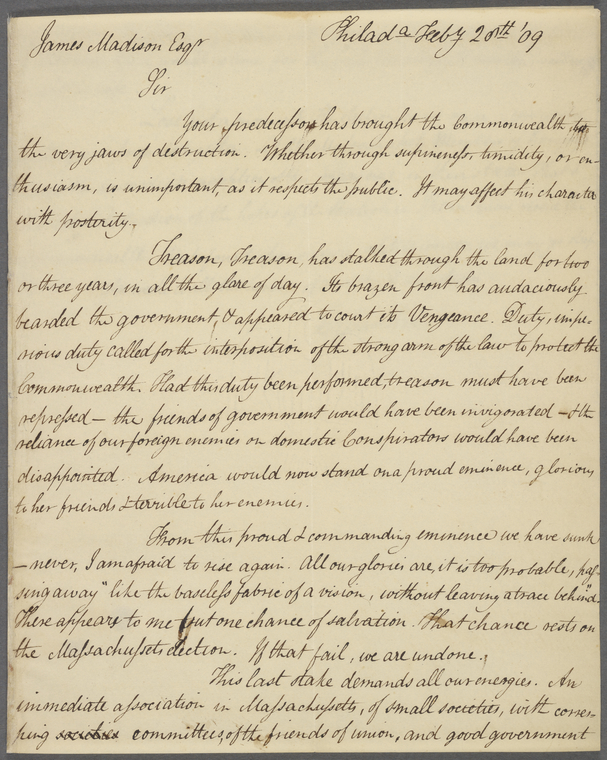 James Madison Esqr
Philada Feby 20th '09
Sir
Your predecessor has brought the Commonwealth to
the very jaws of destruction. Whether through supineness, timidity, or en-
thusiasm, is unimportant, as it respects the public. It may affect his character
with posterity.
Treason, Treason, has stalked through the land for two
or three years, in all the glare of day. Its brazen front has audaciously
bearded the government, & appeared to court its Vengeance. Duty, impe-
rious duty called for the interposition of the strong arm of the law to protect the
Commonwealth. Had this duty been performed, treason must have been
repressed — the friends of government would have been invigorated — & the
reliance of our foreign enemies on domestic Conspirators would have been
disappointed. America would now stand on a proud eminence, glorious
to her friends & terrible to her enemies.
From this proud & commanding eminence we have sunk
— never, I am afraid to rise again. All our glories are, it is too probable, pas-
sing away "like the baseless fabric of a vision, without leaving a trace behind".
There appears to me but one chance of salvation. That chance rests on
the Massachussets election. If that fail, we are undone.
This last stake demands all our energies. An
immediate association in Massachussetts, of small societies, with corres-
ping societies committees, of the friends of union, and good government